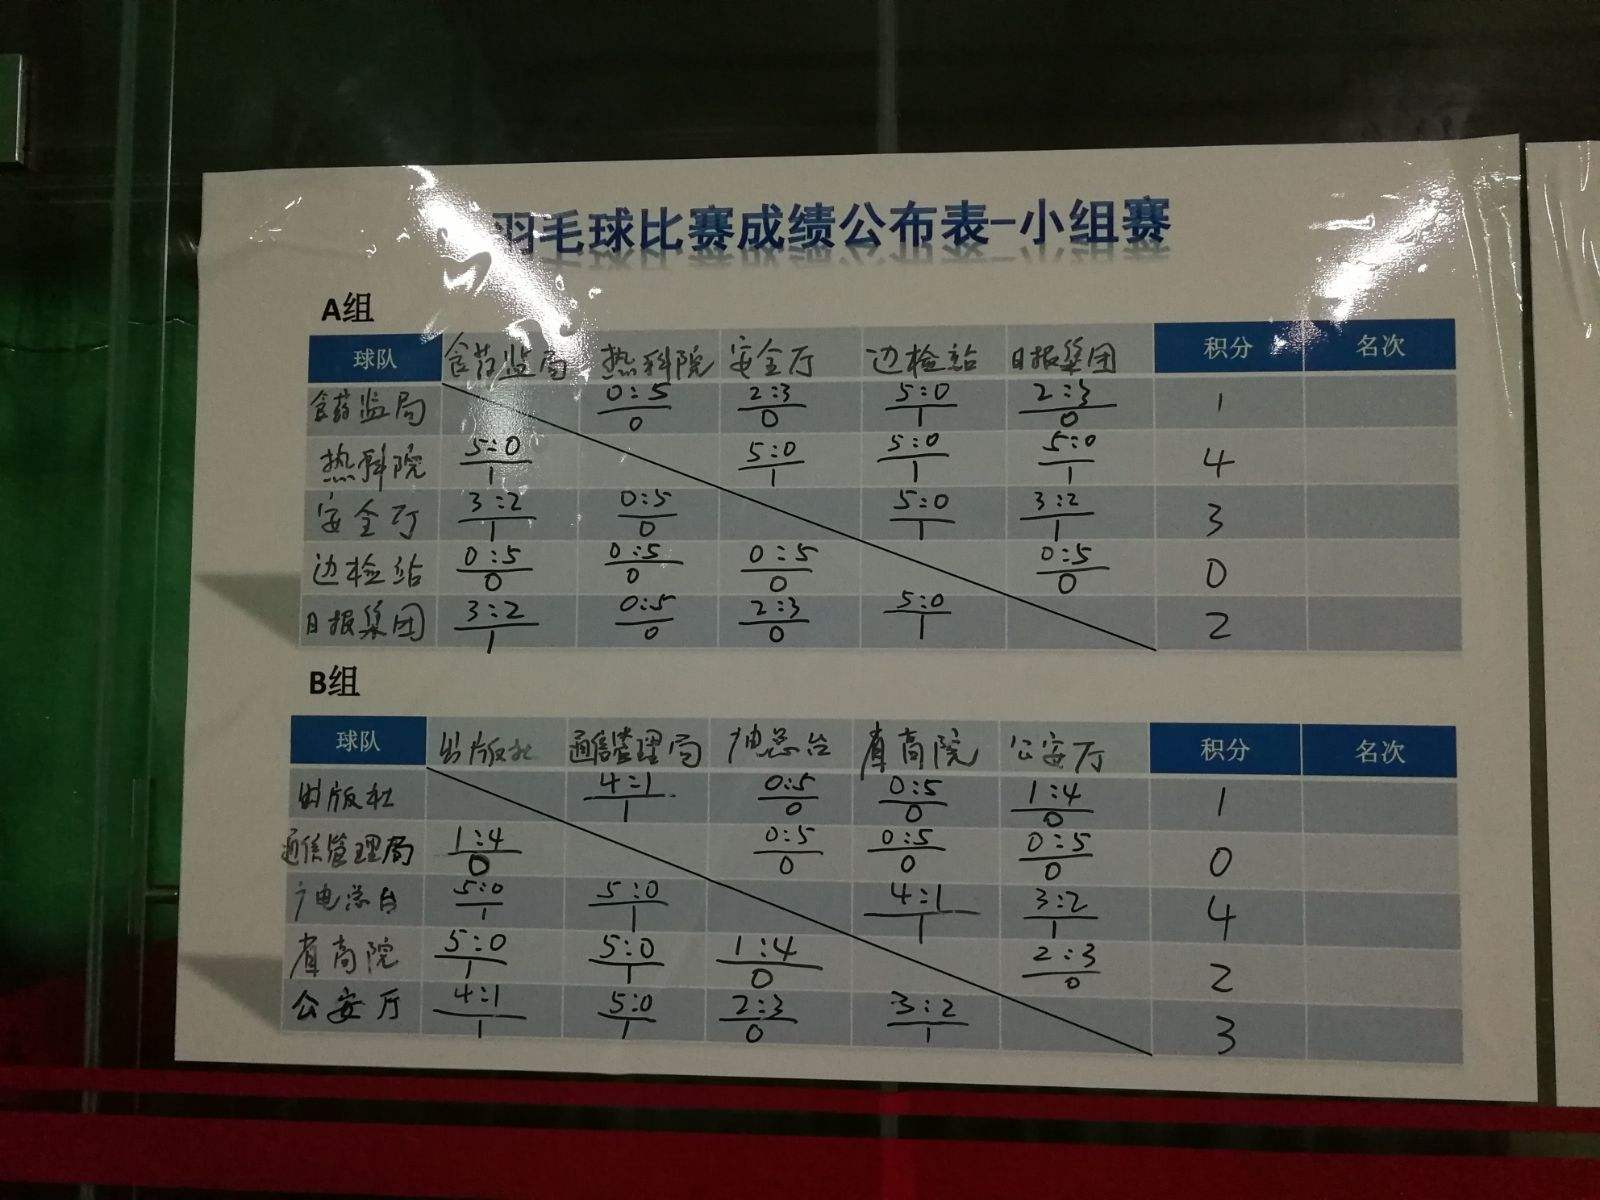 羽毛球比赛成绩公布表-小组赛
A组
球队 食药监局 热科院 安全厅 边检站 日报集团 积分 名次
食药监局 0:5 2:3 5:0 2:3
0 0 1 0 1
热科院 5:0 5:0 5:0 5:0
1 1 1 1 4
安全厅 3:2 0:5 5:0 3:2
1 0 1 1 3
边检站 0:5 0:5 0:5 0:5
0 0 0 0 0
日报集团 3:2 0:5 2:3 5:0
1 0 0 1 2
B组
球队 出版社 通信管理局 广电总台 省高院 公安厅 积分 名次
出版社 4:1 0:5 0:5 1:4
1 0 0 0 1
通信管理局 1:4 0:5 0:5 0:5
0 0 0 0 0
广电总台 5:0 5:0 4:1 3:2
1 1 1 1 4
省高院 5:0 5:0 1:4 2:3
1 1 0 0 2
公安厅 4:1 5:0 2:3 3:2
1 1 0 1 3